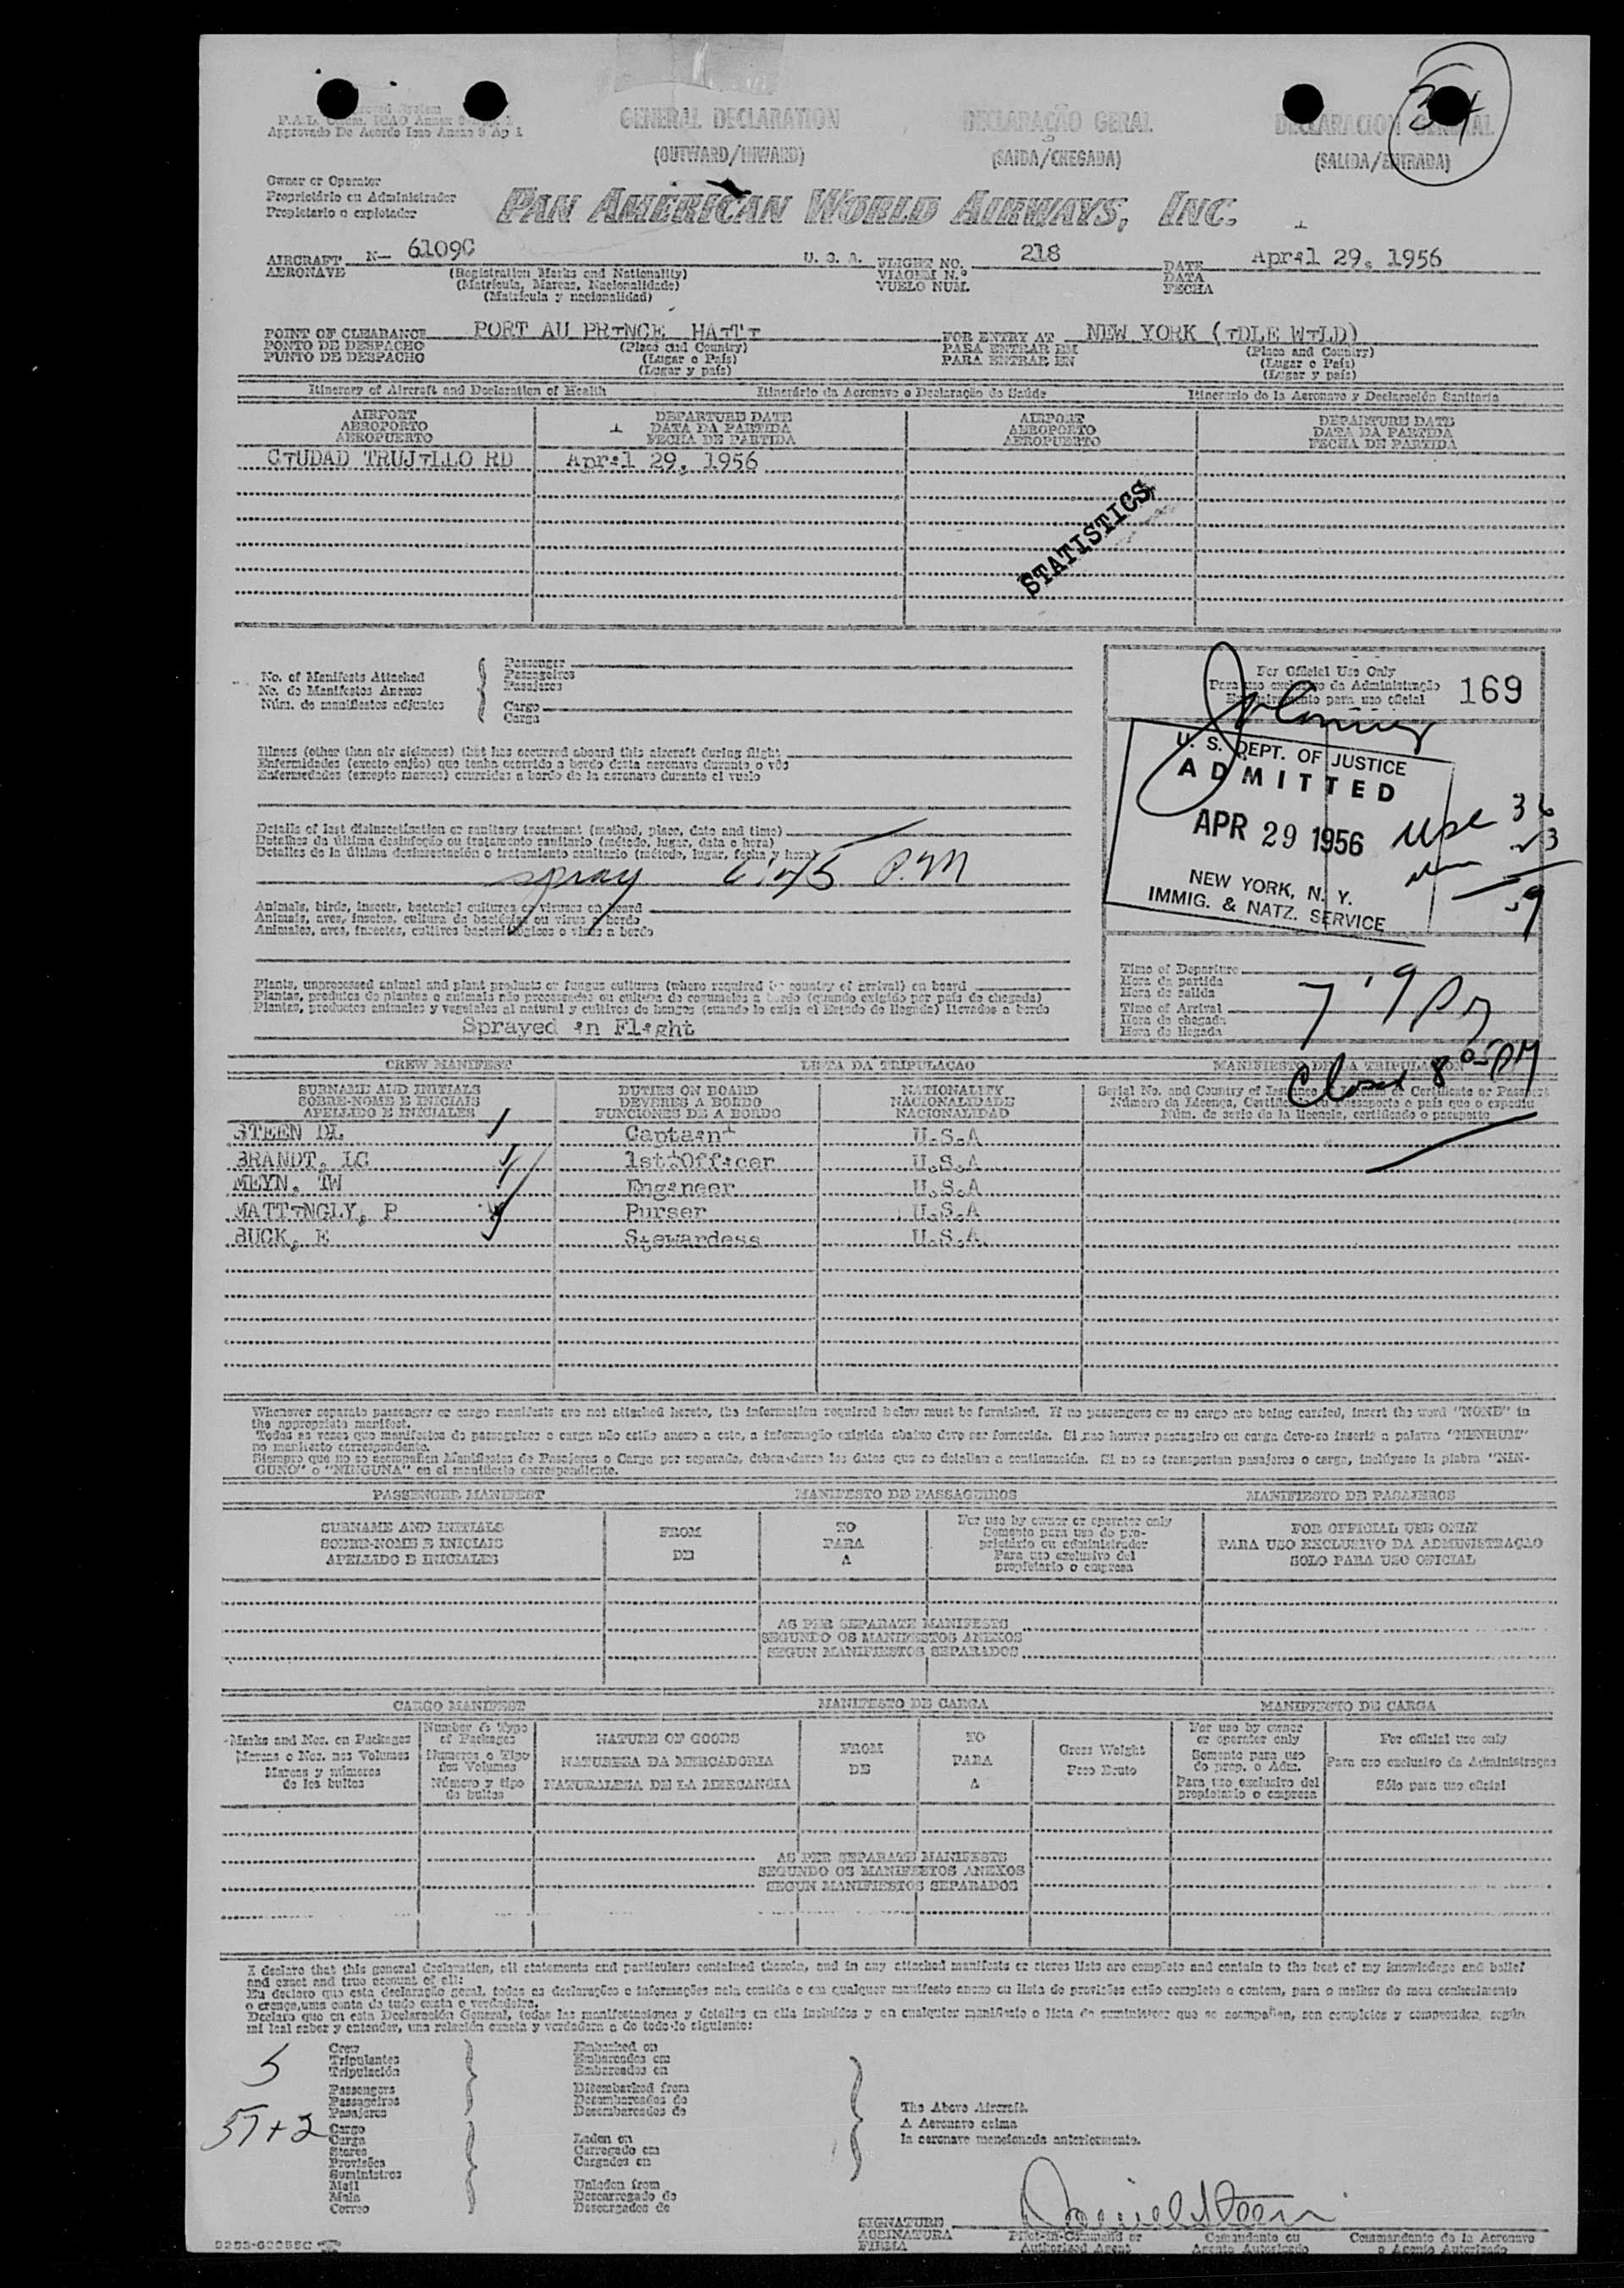 Approvado De Acordo Icao Anexo 9 Ap 1
GENERAL DECLARATION
(OUTWARD/INWARD)
DECLARAÇÃO GERAL
(SAIDA/CHEGADA)
DECLARACION GENERAL
(SALIDA/ENTRADA)
34
Owner or Operator
Proprietário ou Administrador
Propietario o explotador
PAN AMERICAN WORLD AIRWAYS, INC.
AIRCRAFT N- 6109C U. S. A. FLIGHT NO. 218 DATE April 29, 1956
AERONAVE (Registration Marks and Nationality) VIAGEM N.º DATA
(Matrícula, Marcas, Nacionalidade) VUELO NUM. FECHA
(Matrícula y nacionalidad)
POINT OF CLEARANCE PORT AU PRINCE HAITI FOR ENTRY AT NEW YORK (IDLE WILD)
PONTO DE DESPACHO (Place and Country) PARA ENTRAR EM (Place and Country)
PUNTO DE DESPACHO (Lugar o País) PARA ENTRAR EN (Lugar o País)
(Lugar y país) (Lugar y país)
Itinerary of Aircraft and Declaration of Health Itinerário da Aeronave e Declaração de Saúde Itinerario de la Aeronave y Declaración Sanitaria
AIRPORT DEPARTURE DATE AIRPORT DEPARTURE DATE
AEROPORTO DATA DA PARTIDA AEROPORTO DATA DA PARTIDA
AEROPUERTO FECHA DE PARTIDA AEROPUERTO FECHA DE PARTIDA
CIUDAD TRUJILLO RD April 29, 1956
STATISTICS
No. of Manifests Attached
No. de Manifestos Anexos
Núm. de manifiestos adjuntos
Passenger
Passageiros
Pasajeros
Cargo
Carga
For Official Use Only
Para uso exclusivo da Administração
Exclusivamente para uso oficial
169
U. S. DEPT. OF JUSTICE
ADMITTED
APR 29 1956
NEW YORK, N. Y.
IMMIG. & NATZ. SERVICE
USC 36
23
59
Illness (other than air sickness) that has occurred aboard this aircraft during flight
Enfermidades (exceto enjôo) que tenha ocorrido a bordo desta aeronave durante o vôo
Enfermedades (excepto mareos) ocurridas a bordo de la aeronave durante el vuelo
Details of last disinsectization or sanitary treatment (method, place, date and time)
Detalhes da última desinfeção ou tratamento sanitario (método, lugar, data e hora)
Detalles de la última desinsectación o tratamiento sanitario (método, lugar, fecha y hora)
spray 6:45 P.M
Animals, birds, insects, bacterial cultures or viruses on board
Animais, aves, insetos, cultura de bactérias ou virus a bordo
Animales, aves, insectos, cultivos bacteriológicos o virus a bordo
Plants, unprocessed animal and plant products or fungus cultures (where required by country of arrival) on board
Plantas, produtos de plantas o animais não processados ou cultura de cogumelos a bordo (quando exigido por país de chegada)
Plantas, productos animales y vegetales al natural y cultivos de hongos (cuando lo exija el Estado de llegada) llevados a bordo
Sprayed in Flight
Time of Departure
Hora da partida
Hora de salida
Time of Arrival
Hora de chegada
Hora de llegada
7:19 Pm
Closed 8 05 PM
CREW MANIFEST LISTA DA TRIPULACAO MANIFIESTO DE LA TRIPULACION
SURNAME AND INITIALS DUTIES ON BOARD NATIONALITY Serial No. and Country of Issuance of License or Certificate or Passport
SOBRE-NOME E INICIAIS DEVERES A BORDO NACIONALIDADE Número da Licença, Certificado ou Passaporte e país que o expediu
APELLIDO E INICIALES FUNCIONES DE A BORDO NACIONALIDAD Núm. de serie de la licencia, certificado o pasaporte
STEEN DL Captain U.S.A
BRANDT, LC 1st Officer U.S.A
MEYN, TW Engineer U.S.A
MATTINGLY, P Purser U.S.A
BUCK, E Stewardess U.S.A
Whenever separate passenger or cargo manifests are not attached hereto, the information required below must be furnished. If no passengers or no cargo are being carried, insert the word "NONE" in
the appropriate manifest.
Todas as vezes que manifestos de passageiros e carga não estão anexo a este, a informação exigida abaixo deve ser fornecida. Si nao houver passageiro ou carga deve-se inserir a palavra "NENHUM"
no manifesto correspondente.
Siempre que no se acompañen Manifiestos de Pasajeros o Carga por separado, deben darse los datos que se detallan a continuación. Si no se transportan pasajeros o carga, inclúyase la plabra "NIN-
GUNO" o "NINGUNA" en el manifiesto correspondiente.
PASSENGER MANIFEST MANIFESTO DE PASSAGEIROS MANIFIESTO DE PASAJEROS
SURNAME AND INITIALS
SOBRE-NOME E INICIAIS
APELLIDO E INICIALES
FROM
DE
TO
PARA
A
For use by owner or operator only
Somente para uso do pro-
prietário ou administrador
Para uso exclusivo del
propietario o empresa
FOR OFFICIAL USE ONLY
PARA USO EXCLUSIVO DA ADMINISTRAÇAO
SOLO PARA USO OFICIAL
AS PER SEPARATE MANIFESTS
SEGUNDO OS MANIFESTOS ANEXOS
SEGUN MANIFIESTOS SEPARADOS
CARGO MANIFEST MANIFESTO DE CARGA MANIFIESTO DE CARGA
Marks and Nos. on Packages
Marcas e Nos. nos Volumes
Marcas y números
de los bultos
Number & Type
of Packages
Numeros e Tipo
dos Volumes
Número y tipo
de bultos
NATURE OF GOODS
NATUREZA DA MERCADORIA
NATURALESA DE LA MERCANCIA
FROM
DE
TO
PARA
A
Gross Weight
Peso Bruto
For use by owner
or operator only
Somente para uso
do prop. o Adm.
Para uso exclusivo del
propietario o empresa
For official use only
Para uso exclusivo da Administraçao
Sólo para uso oficial
AS PER SEPARATE MANIFESTS
SEGUNDO OS MANIFESTOS ANEXOS
SEGUN MANIFIESTOS SEPARADOS
I declare that this general declaration, all statements and particulars contained therein, and in any attached manifests or stores lists are complete and contain to the best of my knowledge and belief
and exact and true account of all:
Eu declaro que esta declaração geral, todas as declarações e informações nela contida o em qualquer manifesto anexo ou lista de provisões estão completo e contem, para o melhor do meu conhecimento
e crença, uma conta de tudo exata e verdadeira.
Declaro que en esta Declaración General, todas las manifestaciones y detalles en ella incluidos y en cualquier manifiesto o lista de suministros que se acompañen, son completos y comprenden, según
mi leal saber y entender, una relación exacta y verdadera a de todo lo siguiente:
5
57+2
Crew
Tripulantes
Tripulación
Passengers
Passageiros
Pasajeros
Cargo
Carga
Stores
Provisões
Suministros
Mail
Mala
Correo
Embarked on
Embarcados em
Embarcados en
Disembarked from
Desembarcados de
Desembarcados de
Laden on
Carregado em
Cargados en
Unladen from
Descarregado de
Descargados de
The Above Aircraft.
A Aeronave acima
la aeronave mencionada anteriormente.
Daniel Steen
SIGNATURE
ASSINATURA
FIRMA
Pilot-in-Command or
Authorized Agent
Comandante ou
Agente Autorizado
Commandante de la Aeronave
o Agente Autorizado